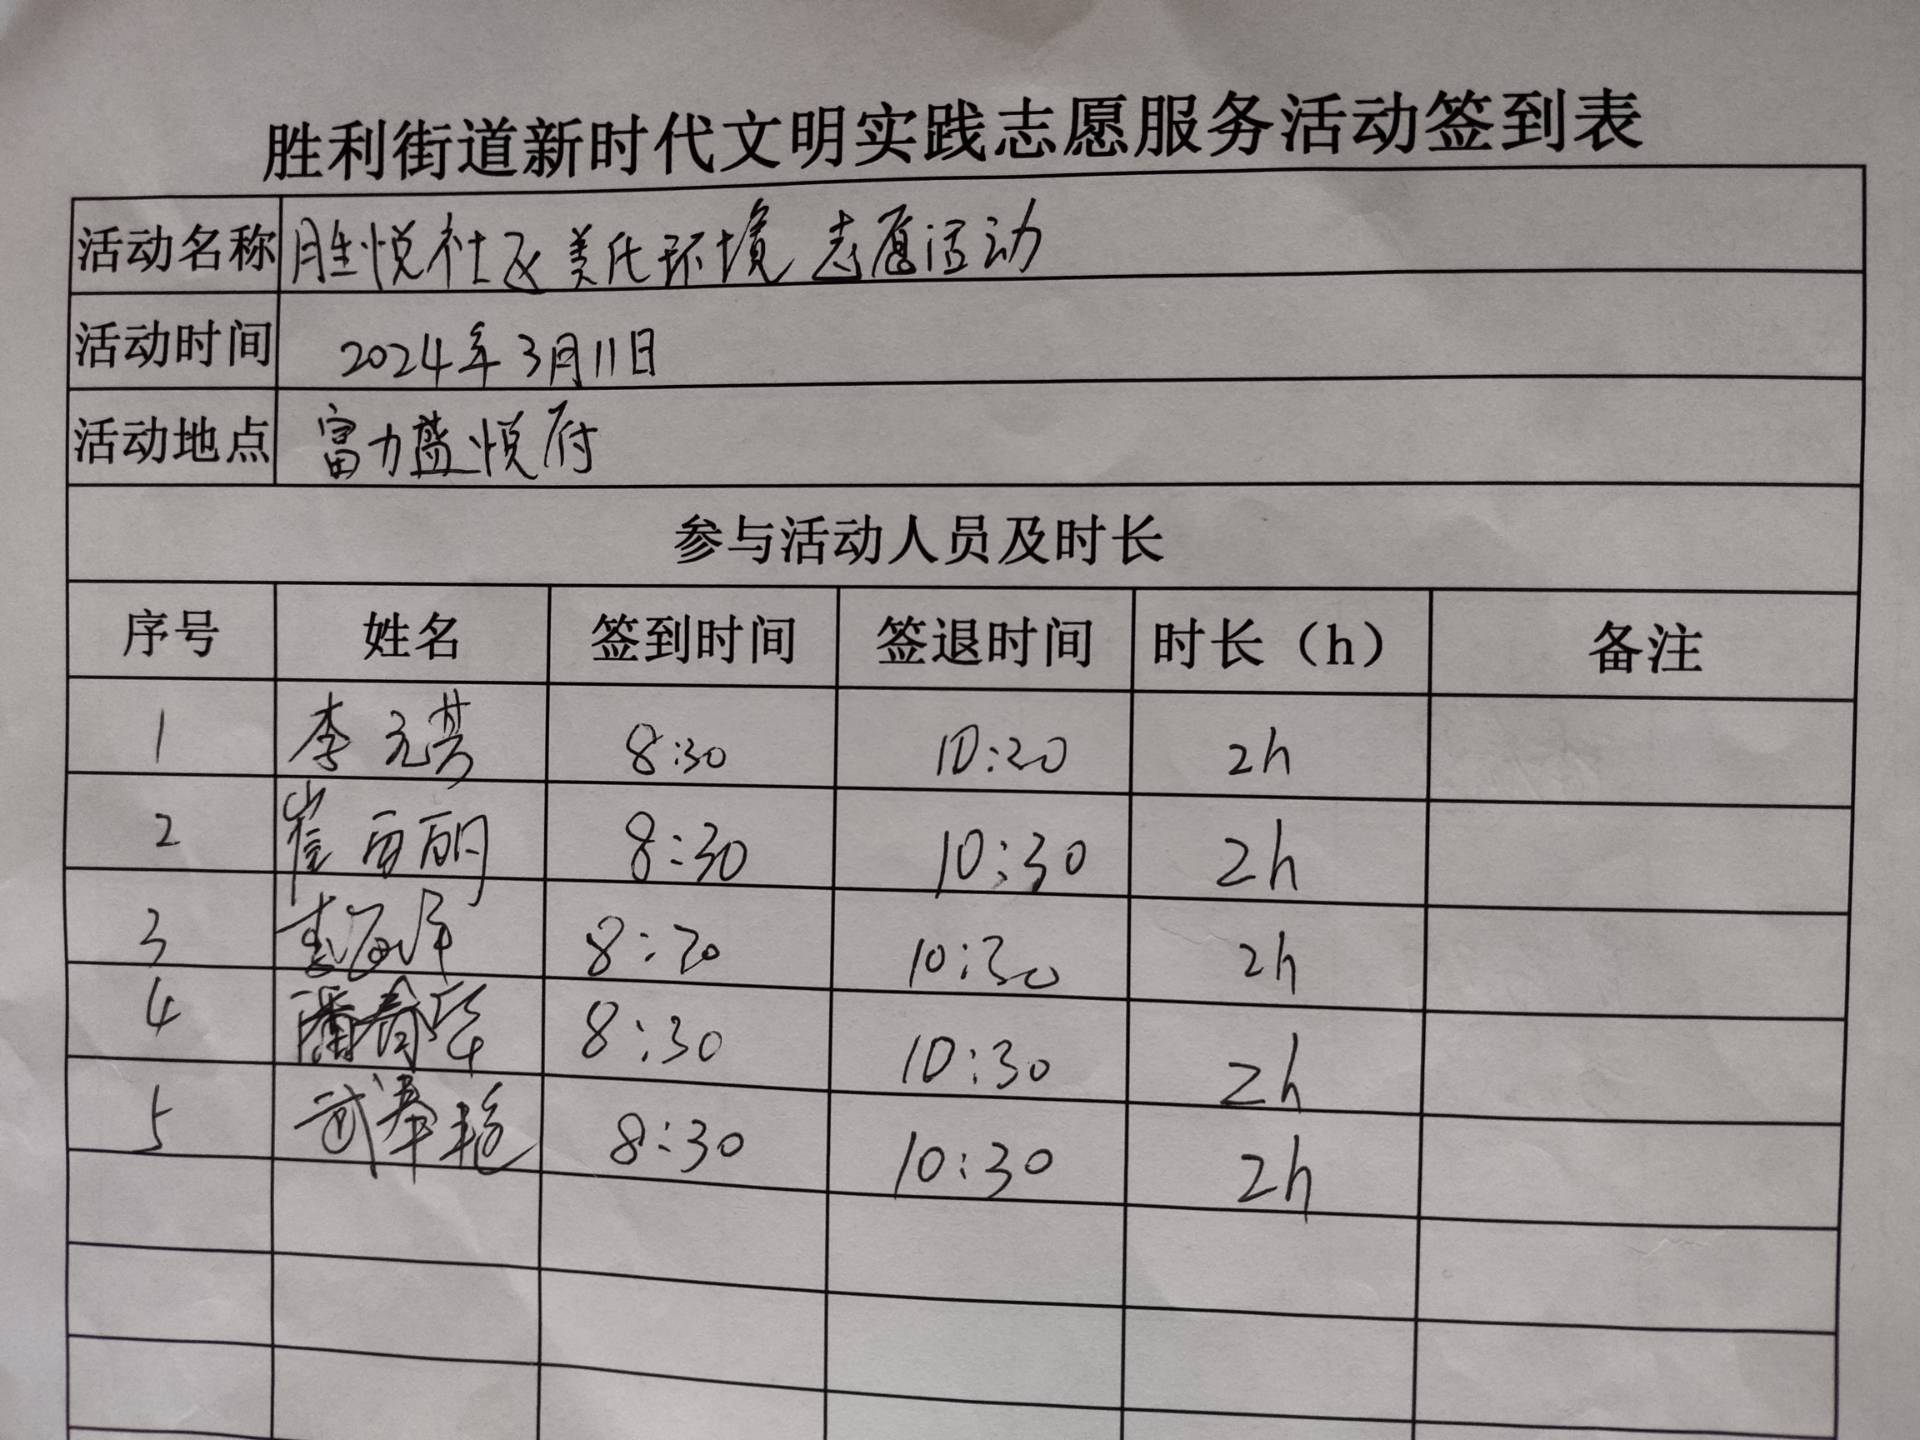 胜利街道新时代文明实践志愿服务活动签到表
活动名称 胜悦社区美化环境志愿活动
活动时间 2024年3月11日
活动地点 富力盛悦府
参与活动人员及时长
序号 姓名 签到时间 签退时间 时长（h） 备注
1 李元芳 8:30 10:20 2h
2 崔丽 8:30 10:30 2h
3 李海军 8:30 10:30 2h
4 潘春华 8:30 10:30 2h
5 武春艳 8:30 10:30 2h